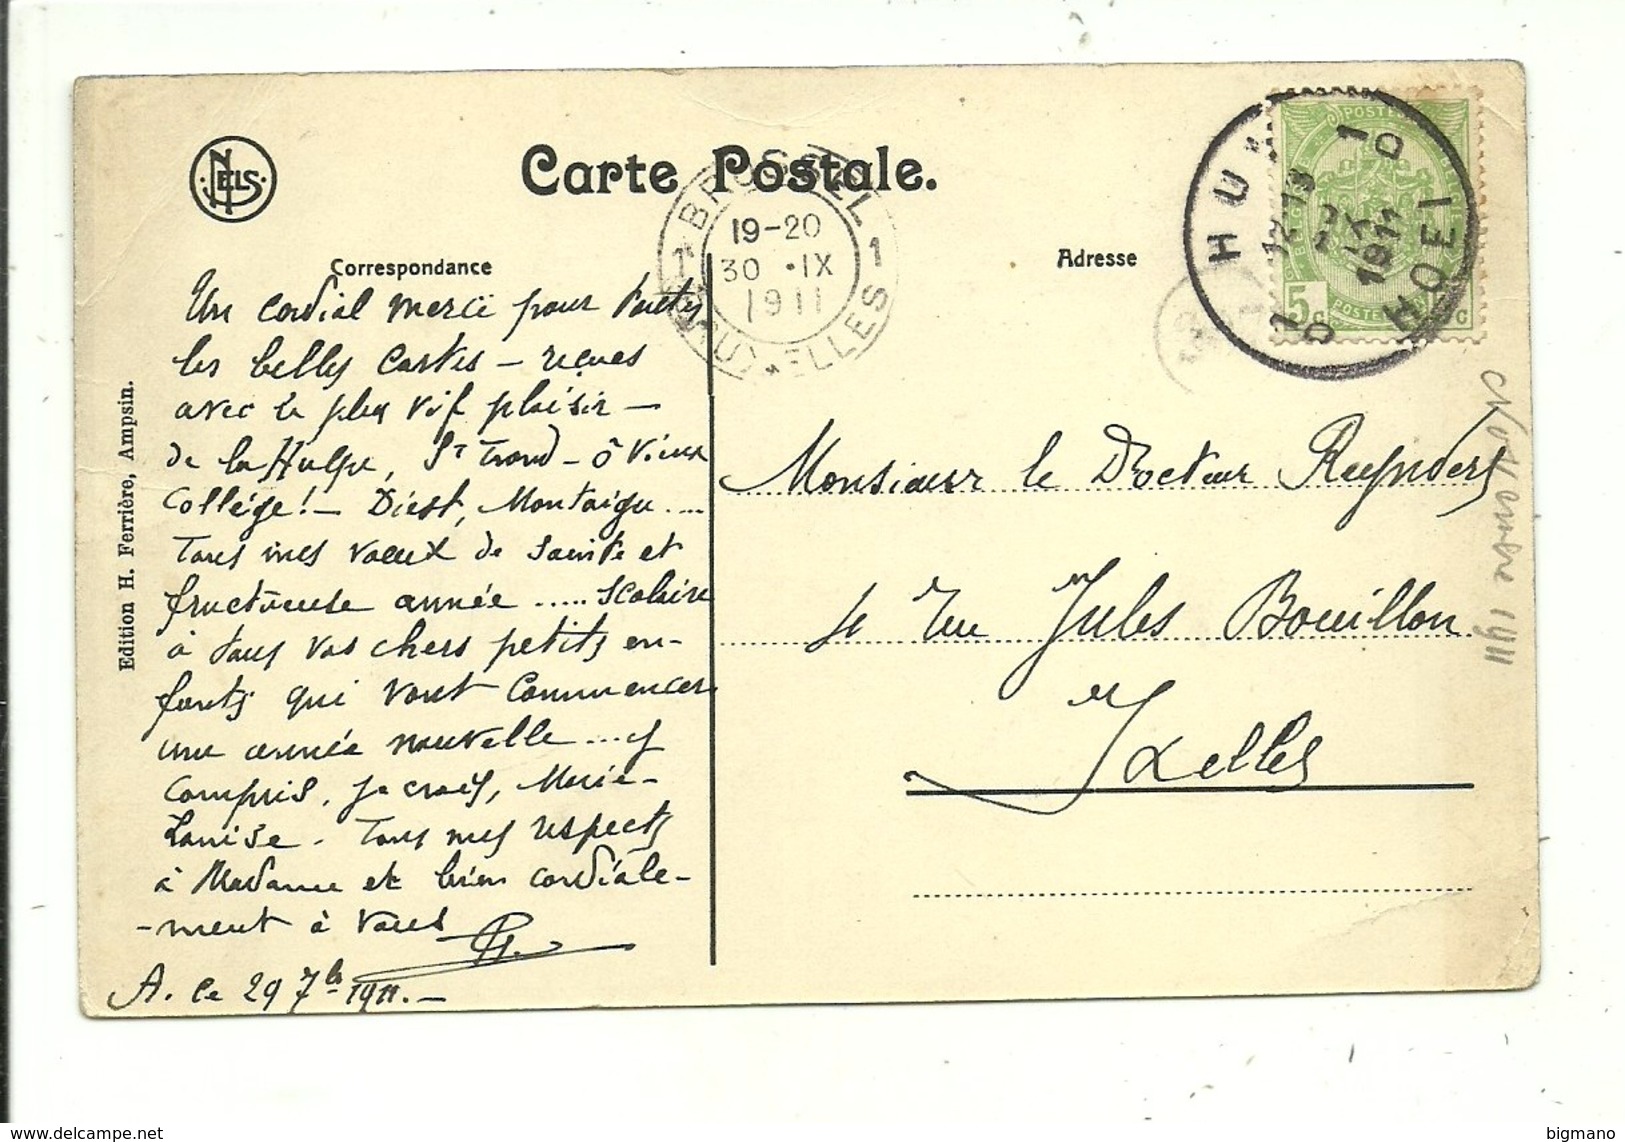 NELS
Carte Postale.
BRUSSEL 1
19-20
30 · IX
1911
BRUXELLES 1
HUY 1
12-13
IX
1911
HOEI
POSTES
5c
Correspondance
Adresse
Un cordial merci pour toutes
les belles cartes – reçues
avec le plus vif plaisir –
de la Hulpe, St Trond – ô vieux
Collège! – Diest, Montaigu .....
Tous mes vœux de sainte et
fructueuse année ..... scolaire
à tous vos chers petits en-
fants qui vont commencer
une année nouvelle ... y
compris, je crois, Marie-
Louise. Tous mes respects
à Madame et bien cordiale-
-ment à vous
A. Le 29 7b 1911. –
Monsieur le Docteur Reynders
Rue Jules Bouillon
Ixelles
1911
Edition H. Ferrière, Ampsin.
http://www.delcampe.net
bigmano